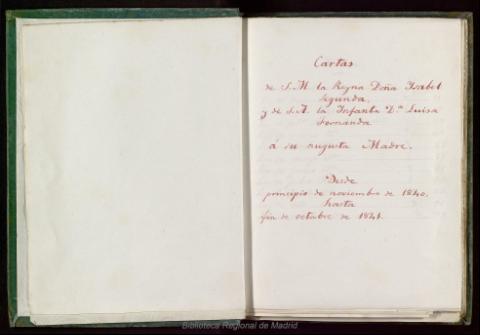 Cartas
de S.M. la Reyna Doña Isabel
Segunda,
y de S.A. la Infanta D.ª Luisa
Fernanda
á su augusta Madre.
Desde
principio de noviembre de 1840.
hasta
fin de octubre de 1841.
Biblioteca Regional de Madrid